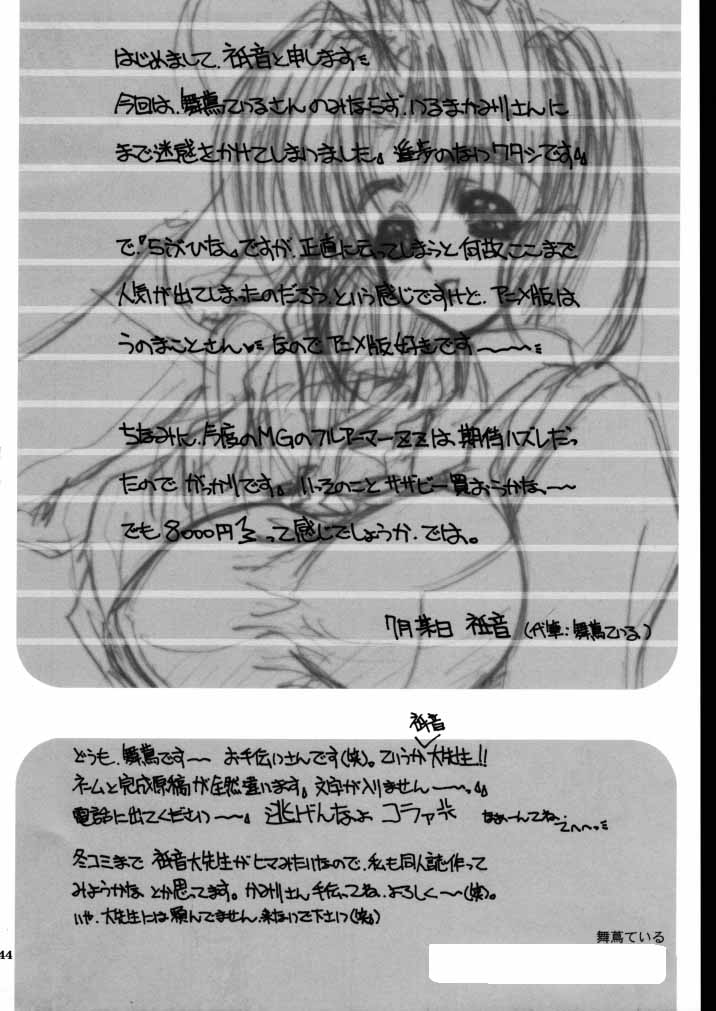 はじめまして、祇音と申します
今回は、舞蔦ているさんのみならず、いるまかみ川さんに
まで迷惑をかけてしまいました。進歩のないワタシです。
で『らぶひな』ですが、正直に云ってしまうと何故ここまで
人気が出てしまったのだろう、という感じですけど、アニメ版は
うのまことさん なのでアニメ版好きです〜〜〜
ちなみに、今度のMGのフルアーマーZZは、期待ハズレだっ
たので がっかりです。いっそのこと サザビー買おうかな、〜〜
でも 8000円 って感じでしょうか、では。
7月某日 祇音 (代筆:舞蔦ている)
祇音
どうも、舞蔦です〜〜 お手伝いさんです(笑)。ていうか大先生!!
ネームと完成原稿が全然違います。文字が入りません〜〜。
電話に出てください〜〜。 逃げんなよ コラァ なぁーんてね、てへへっ
冬コミまで 祇音大先生がヒマみたいなので、私も同人誌作って
みようかな とか思ってます。かみ川さん手伝ってね、よろしく〜〜(笑)。
いや、大先生には頼んでません、来ないで下さいっ(笑)
舞蔦ている
44